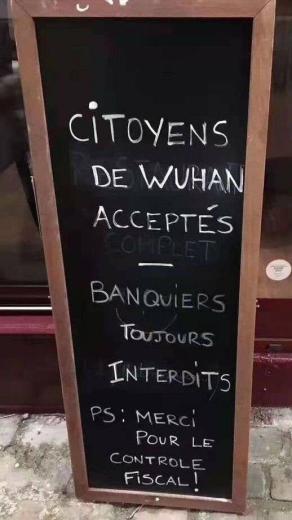 CITOYENS
DE WUHAN
ACCEPTÉS
COMPLET
—
BANQUIERS
TOUJOURS
INTERDITS
PS: MERCI
POUR LE
CONTROLE
FISCAL!